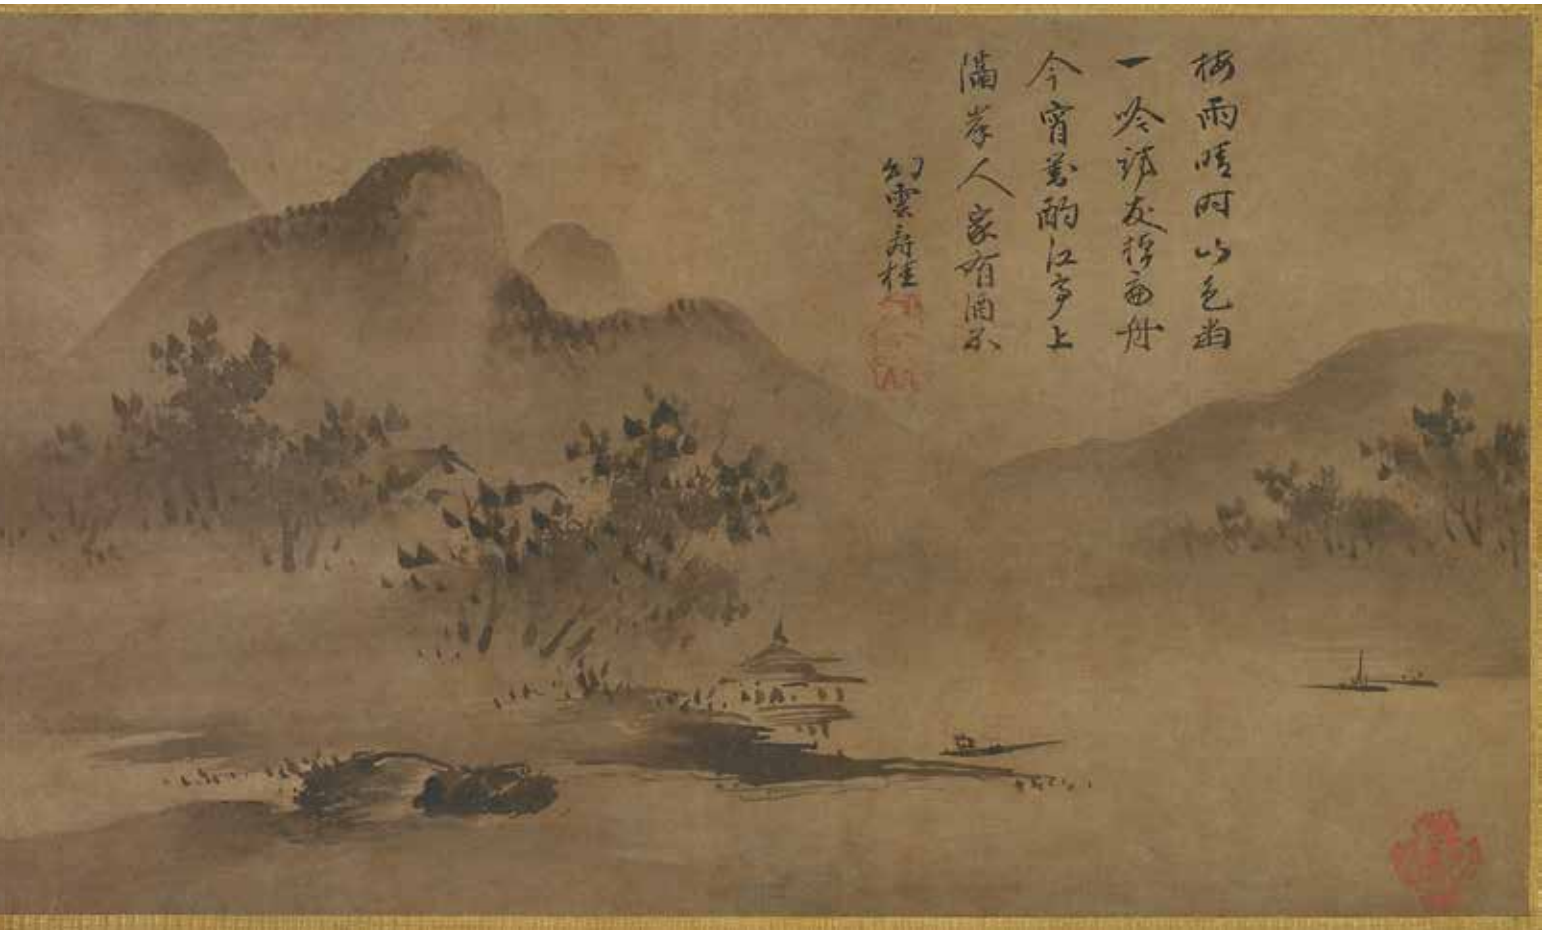 梅雨晴时山色幽
一吟訪友棹扁舟
今宵酌江亭上
滿岸人家有酒不
幻雲寿桂